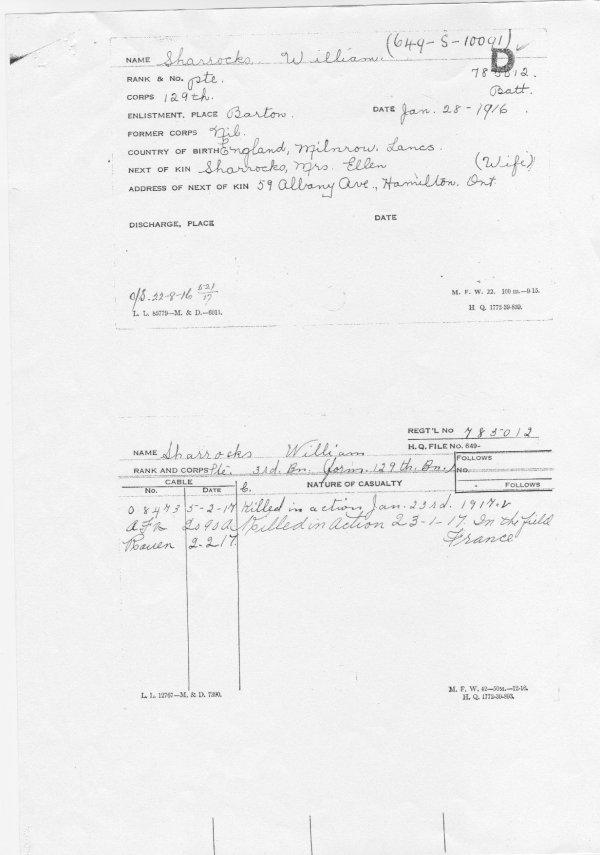 (649-S-10091)
D
NAME Sharrocks, William.
RANK & No. Pte. 785012.
CORPS 129th. Batt.
ENLISTMENT, PLACE Barton. DATE Jan. 28-1916.
FORMER CORPS Nil.
COUNTRY OF BIRTH England, Milnrow, Lancs.
NEXT OF KIN Sharrocks, Mrs. Ellen (Wife)
ADDRESS OF NEXT OF KIN 59 Albany Ave., Hamilton. Ont.
DISCHARGE, PLACE DATE
O/S. 22-8-16
M. F. W. 22. 100 m.—9-15.
L. L. 89779—M. & D.—6011. H. Q. 1772-39-839.
REGT'L NO 785012
H. Q. FILE NO. 649-
NAME Sharrocks William
FOLLOWS
RANK AND CORPS Pte. 3rd. Bn. (form. 129th. Bn.)
NO.
CABLE NATURE OF CASUALTY FOLLOWS
No. DATE C.
08473 5-2-17 Killed in action Jan. 23rd. 1917.
2090A Killed in Action 23-1-17. In the field
Rouen 2-2-17. France
L. L. 12767—M. & D. 7390. M. F. W. 42—50m.—12-16.
H. Q. 1772-39-893.